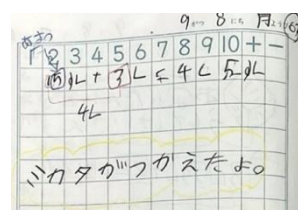 9がつ 8にち 月
2 3 4 5 6 7 8 9 10 + −
15dL + 3L = 4L 5dL
4L
ミカタがつかえたよ。